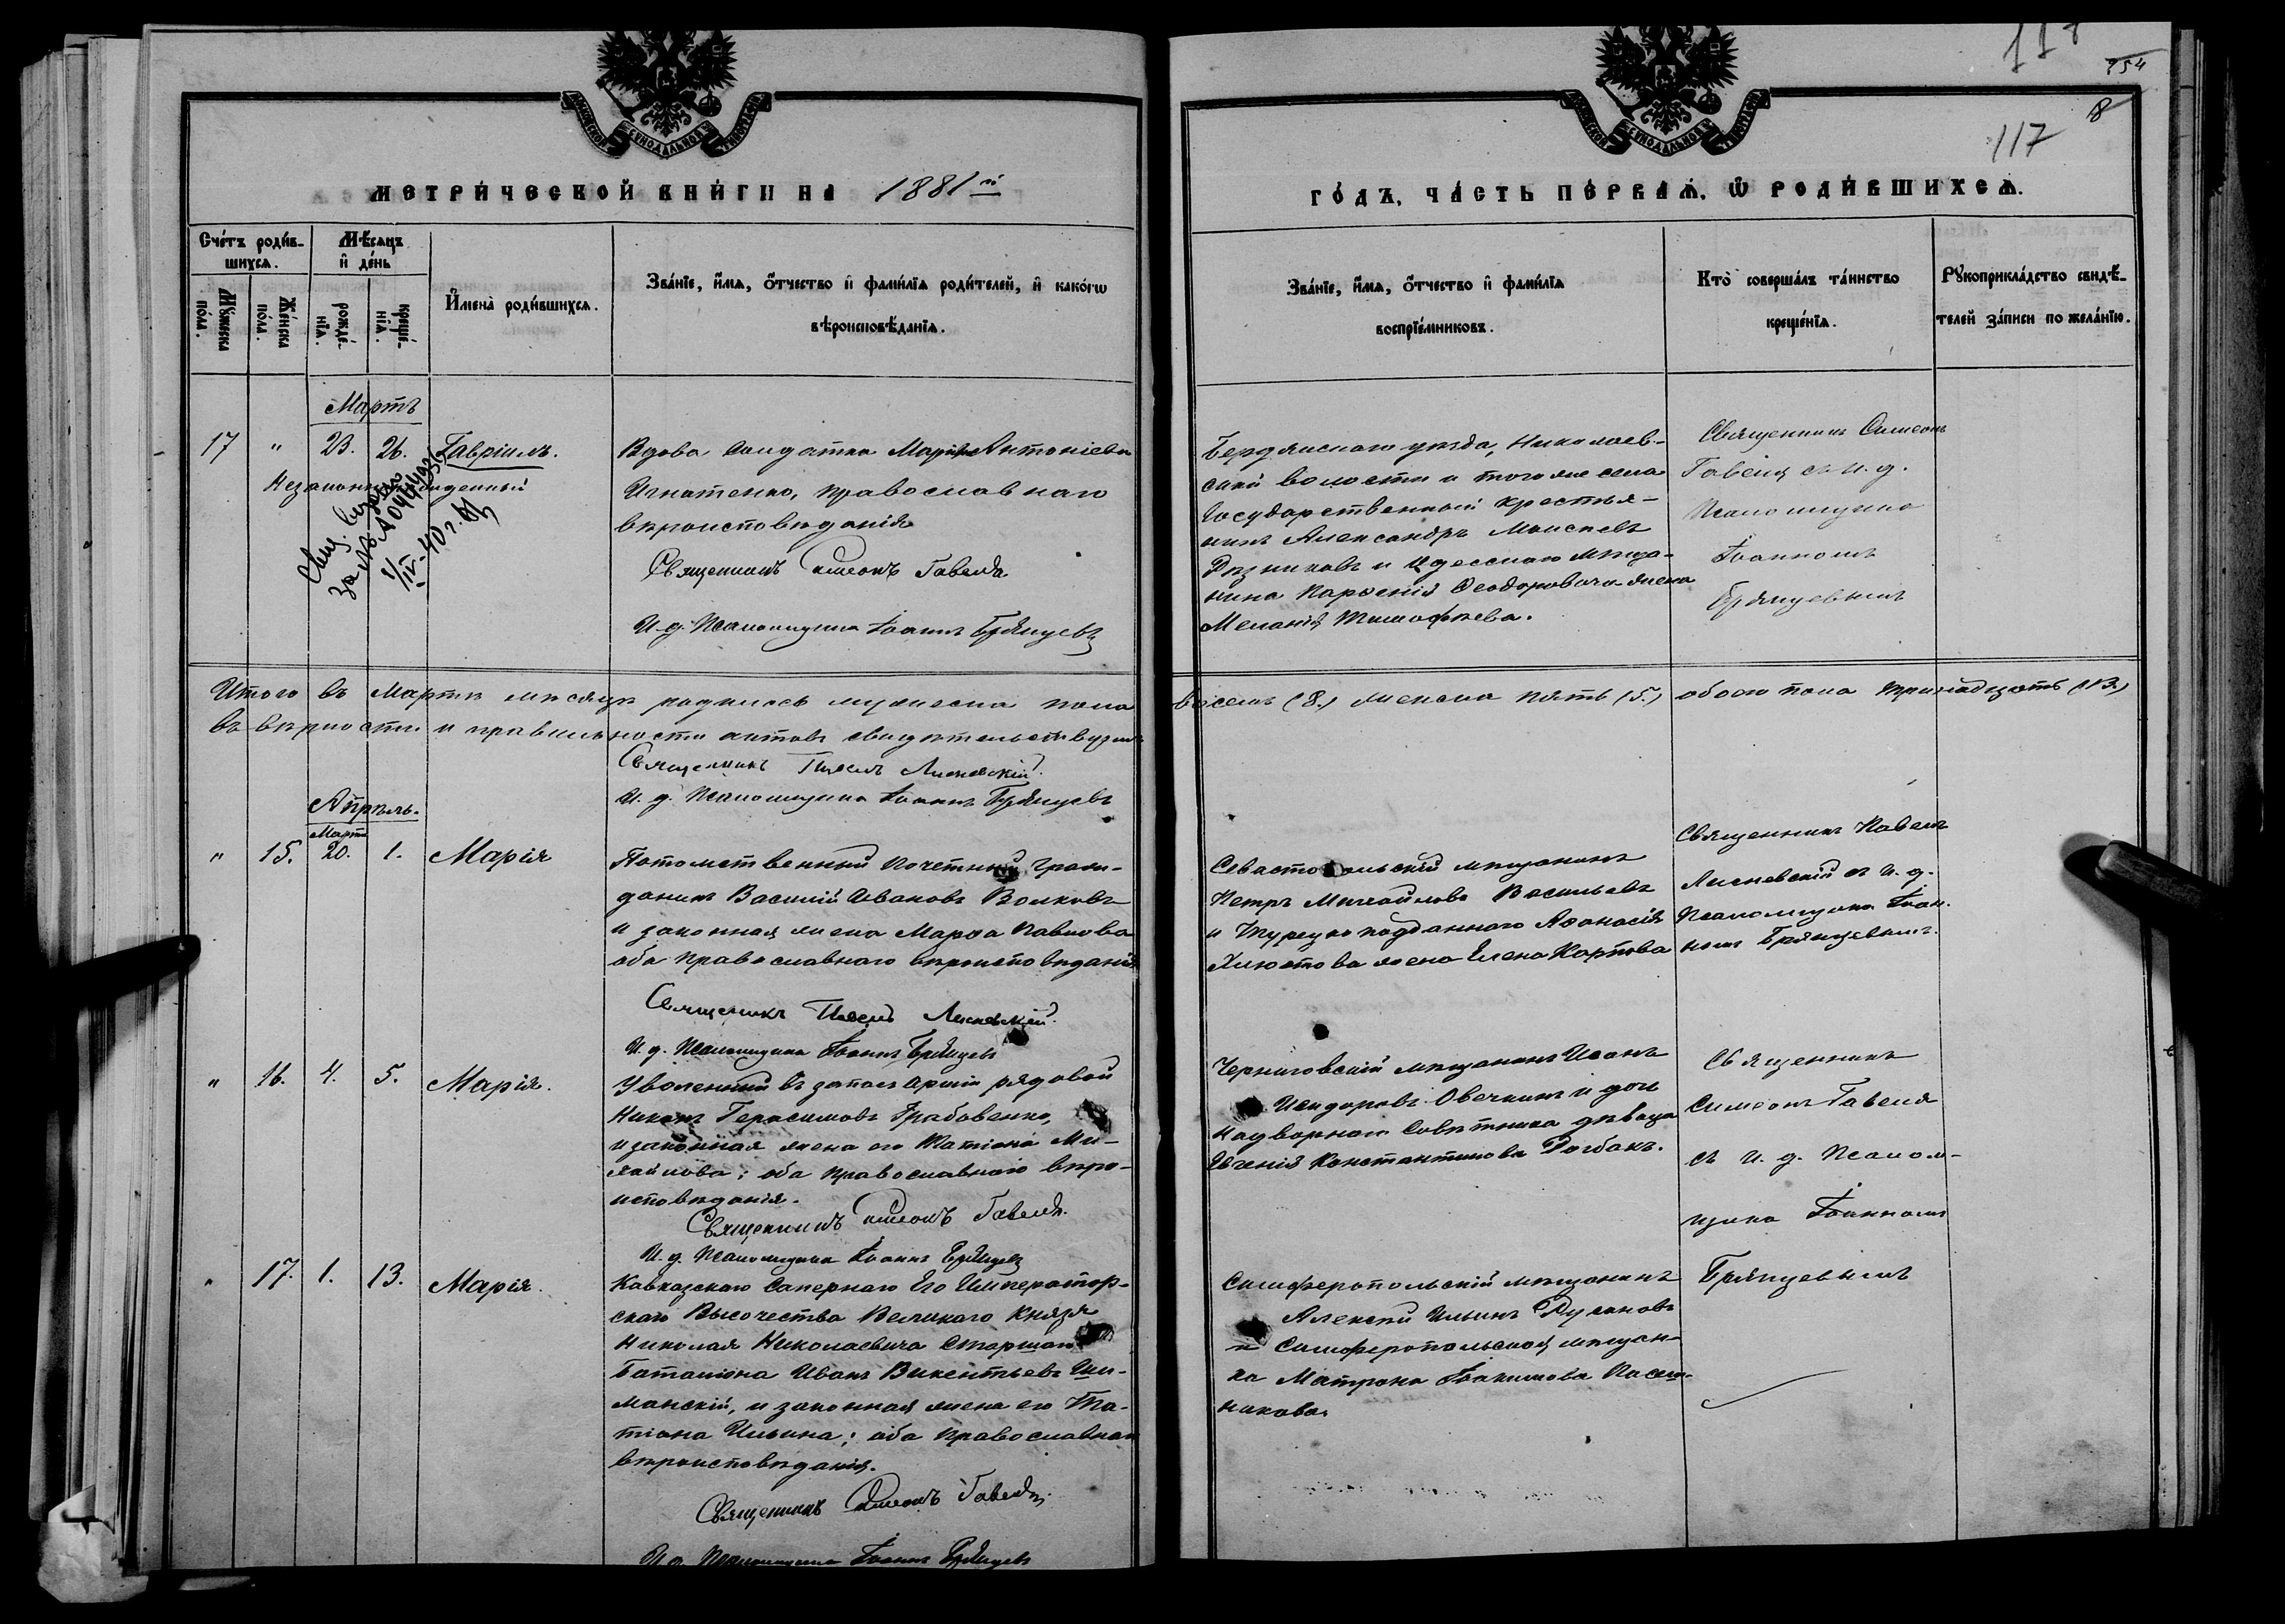 117
754
8
117
МОСКОВСКОЙ СѴНОДАЛЬНОЙ ТИПОГРАФІИ
МОСКОВСКОЙ СѴНОДАЛЬНОЙ ТИПОГРАФІИ
МЕТРИ́ЧЕСКОЙ КНИ́ГИ НА 1881й
ГО́ДЪ, ЧА́СТЬ ПЕ́РВАѦ, Ѿ РОДИ́ВШИХСѦ.
Сче́тъ роди́в-
шихсѧ.
Мꙋ́жеска по́ла.
Же́нска по́ла.
Мѣ́сѧцъ
и де́нь
рожде́-
нїѧ.
креще́-
нїѧ.
Имена̀ роди́вшихсѧ.
Зва́нїе, и́мѧ, о́тчество и фами́лїѧ роди́телей, и како́гѡ
вѣроисповѣ́данїѧ.
Зва́нїе, и́мѧ, о́тчество и фами́лїѧ
воспрїе́мниковъ.
Кто̀ соверша́лъ та́инство
креще́нїѧ.
Рꙋкоприкла́дство свидѣ́-
телей за́писи по жела́нїю.
Мартъ
17 " 23. 26. Гавріилъ.
Незаконнорожденный
Свид. выдано
за №
1/IV-40 г.
Вдова Солдатка Марія Антоніева
Игнатенко, православнаго
вѣроисповѣданія
Священникъ Симеонъ Гавеля.
И. д. Псаломщика Іоаннъ Брянцевъ
Бердянскаго уѣзда, Николаев-
ской волости и того же села
Государственный крестья-
нинъ Александръ Моисеевъ
Рѣзниковъ и Одесскаго мѣща-
нина Парѳенія Ѳеодоровича жена
Меланія Тимофѣева.
Священникъ Симеонъ
Гавеля съ и. д.
Псаломщика
Іоанномъ
Брянцевымъ
Итого въ Мартѣ мѣсяцѣ родилось мужеска пола восемь (8.) женска пять (5.) обоего пола тринадцать (13.)
Въ вѣрности и правильности актовъ свидѣтельствуемъ
Священникъ Павелъ Лисневскій.
И. д. Псаломщика Іоаннъ Брянцевъ
Апрѣль.
Марта
" 15. 20. 1. Марія
Потомственный Почетный Граж-
данинъ Василій Ивановъ Волковъ
и законная жена Марѳа Павлова
оба православнаго вѣроисповѣданія
Священникъ Павелъ Лисневскій.
И. д. Псаломщика Іоаннъ Брянцевъ
Севастопольскій мѣщанинъ
Петръ Михайловъ Васильевъ
и Турецко подданнаго Аѳанасія
жена Елена Карпова
Священникъ Павелъ
Лисневскій съ и. д.
Псаломщика Іоан-
номъ Брянцевымъ.
" 16. 4. 5. Марія.
Уволенный въ запасъ арміи рядовой
Никонъ Герасимовъ Грабовенко,
и законная жена его Татіана Ми-
хайлова; оба православнаго вѣро-
исповѣданія.
Священникъ Симеонъ Гавеля.
И. д. Псаломщика Іоаннъ Брянцевъ
Черниговскій мѣщанинъ Иванъ
Исидоровъ Овечкинъ и дочь
Надворнаго Совѣтника дѣвица
Евгенія Константинова
Священникъ
Симеонъ Гавеля
съ и. д. Псалом-
щика Іоанномъ
Брянцевымъ
" 17. 1. 13. Марія.
Кавказскаго Сапернаго Его Император-
скаго Высочества Великаго Князя
Николая Николаевича Старшаго
Баталіона Иванъ Викентьевъ Ши-
манскій, и законная жена его Та-
тіана Ильина; оба православнаго
вѣроисповѣданія.
Священникъ Симеонъ Гавеля.
И. д. Псаломщика Іоаннъ Брянцевъ
Симферопольскій мѣщанинъ
Алексѣй Ильинъ Русановъ
и Симферопольская мѣщан-
ка Матрона Іоакимова Пасеч-
никова.